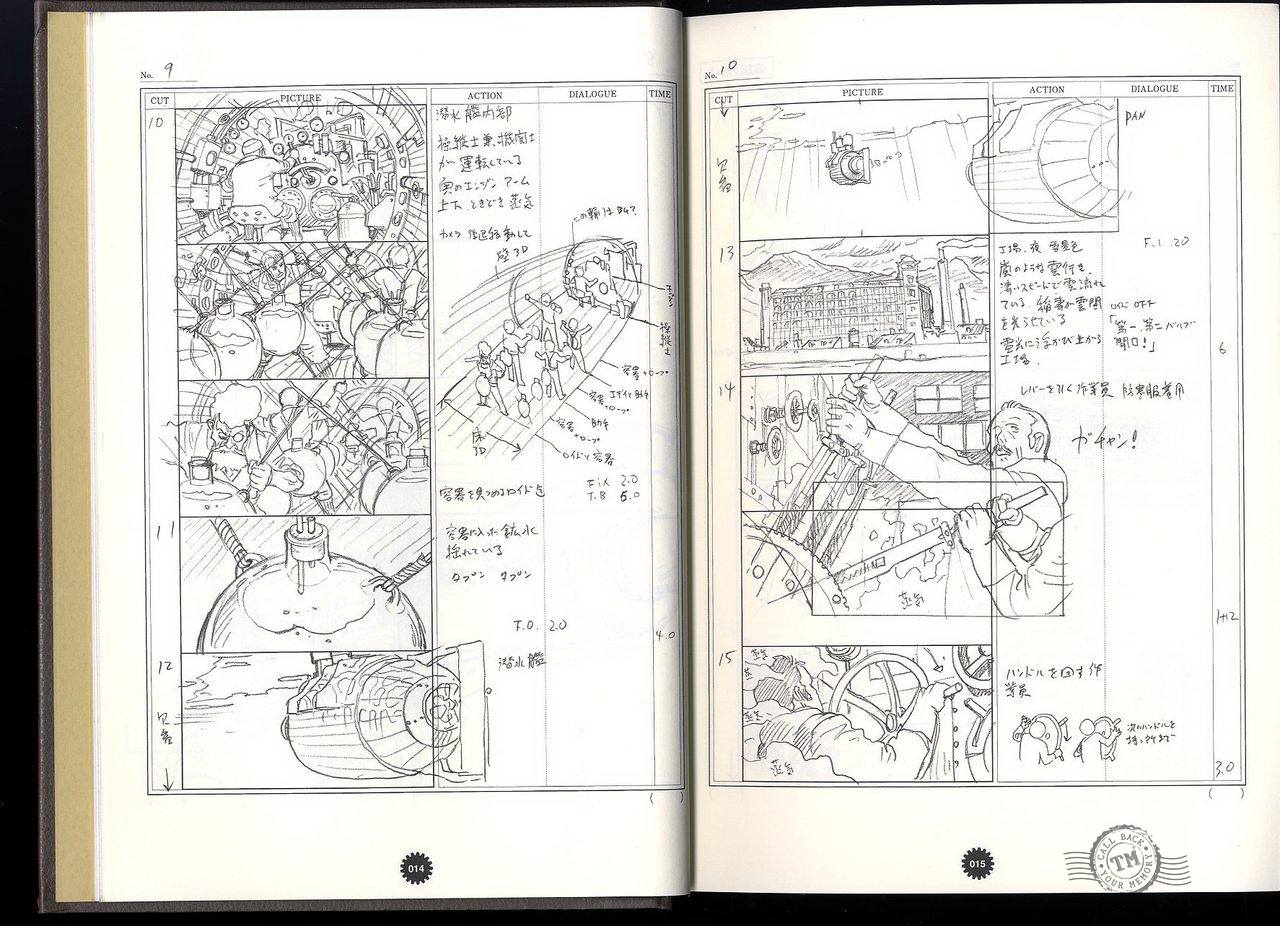 No. 9
CUT PICTURE ACTION DIALOGUE TIME
10
潜水艦内部
操縦士兼機関士
が運転している
奥のエンジン アーム
上下、ときどき蒸気
壁3D
エンジン
操縦士
容器+ロープ
容器 エディと助手
+ロープ
容器 助手
+ロープ
ロイドと容器
床
3D
容器を見つめるロイド達
Fix 2.0
T.B 6.0
11
容器に入った鉱水
揺れている
タプン タプン
F.O. 2.0
4.0
12
潜水艦
欠番
( )
014
No. 10
CUT PICTURE ACTION DIALOGUE TIME
PAN
欠番
13
工場、夜 雪景色
嵐のような雲行き、
速いスピードで雲流れ
ている 稲妻が雲間
を光らせている
雷光に浮かび上がる
工場、
F.I. 20
ロイド OFF
「第一、第二バルブ
開口!」
6
14
レバーを引く作業員 防寒服着用
ガチャン!
蒸気
1+12
15
蒸気
蒸気
蒸気
ハンドルを回す作
業員
次のハンドルを
持つ所まで
3.0
( )
015
CALL BACK
TM
YOUR MEMORY